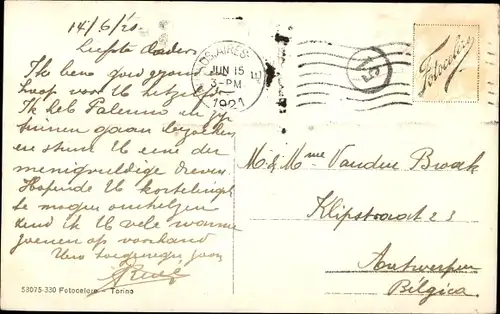 14/6/20.
Liefste Ouders
Ik ben goed gezond
hoop voor U hetzelfde
Ik heb Palermo en zijn
tuinen gaan bezoeken
en stuur U een der
menigvuldige dreven
Hopende U kortelings
te mogen omhelzen
zend ik U vele warme
zoenen op voorhand
Uw toegenegen zoon
BUENOS AIRES
JUN 15
3-PM
192
Fotocelere
M & Mme Vanden Broek
Klipstraat 23
Antwerpen
Belgica
53075-330 Fotocelere - Torino